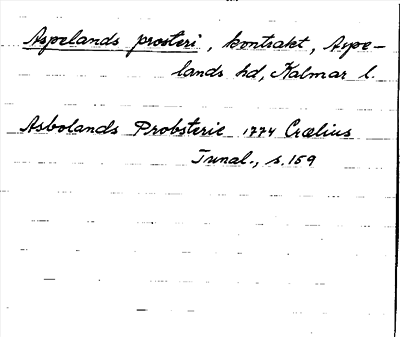 Aspelands prosteri, kontrakt, Aspe-
lands hd, Kalmar l.
Asbolands Probsterie 1774 Crælius
Tunal., s. 159